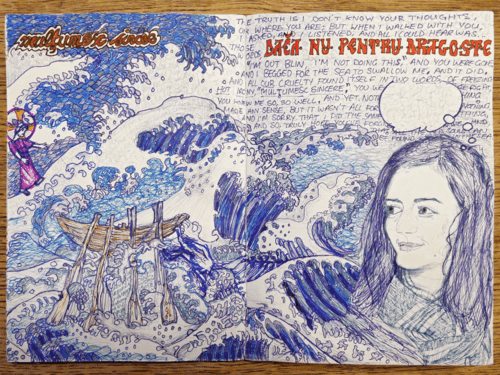 mulțumesc sincer
THE TRUTH IS I DON'T KNOW YOUR THOUGHTS,
OR WHERE YOU ARE; BUT WHEN I WALKED WITH YOU,
I ASKED AND I LISTENED, AND ALL I COULD HEAR WAS
THOSE
WORDS
DACĂ NU PENTRU DRAGOSTE
OUT BLIN, "I'M NOT DOING THIS," AND YOU WERE GONE
AND I BEGGED FOR THE SEA TO SWALLOW ME, AND IT DID,
AND ALL OUR CRUELTY FOUND ITSELF IN TWO WORDS, OF FREEZING
HOT IRONY, "MULȚUMESC SINCERE", YOU
YOU KNEW ME SO, SO WELL, AND YET, NOT
MADE ANY SENSE, BUT IT WASN'T ALL FOR
AND I'M SORRY THAT I DID THE SAME
AND SO TRULY HOPE YOU'LL FOR